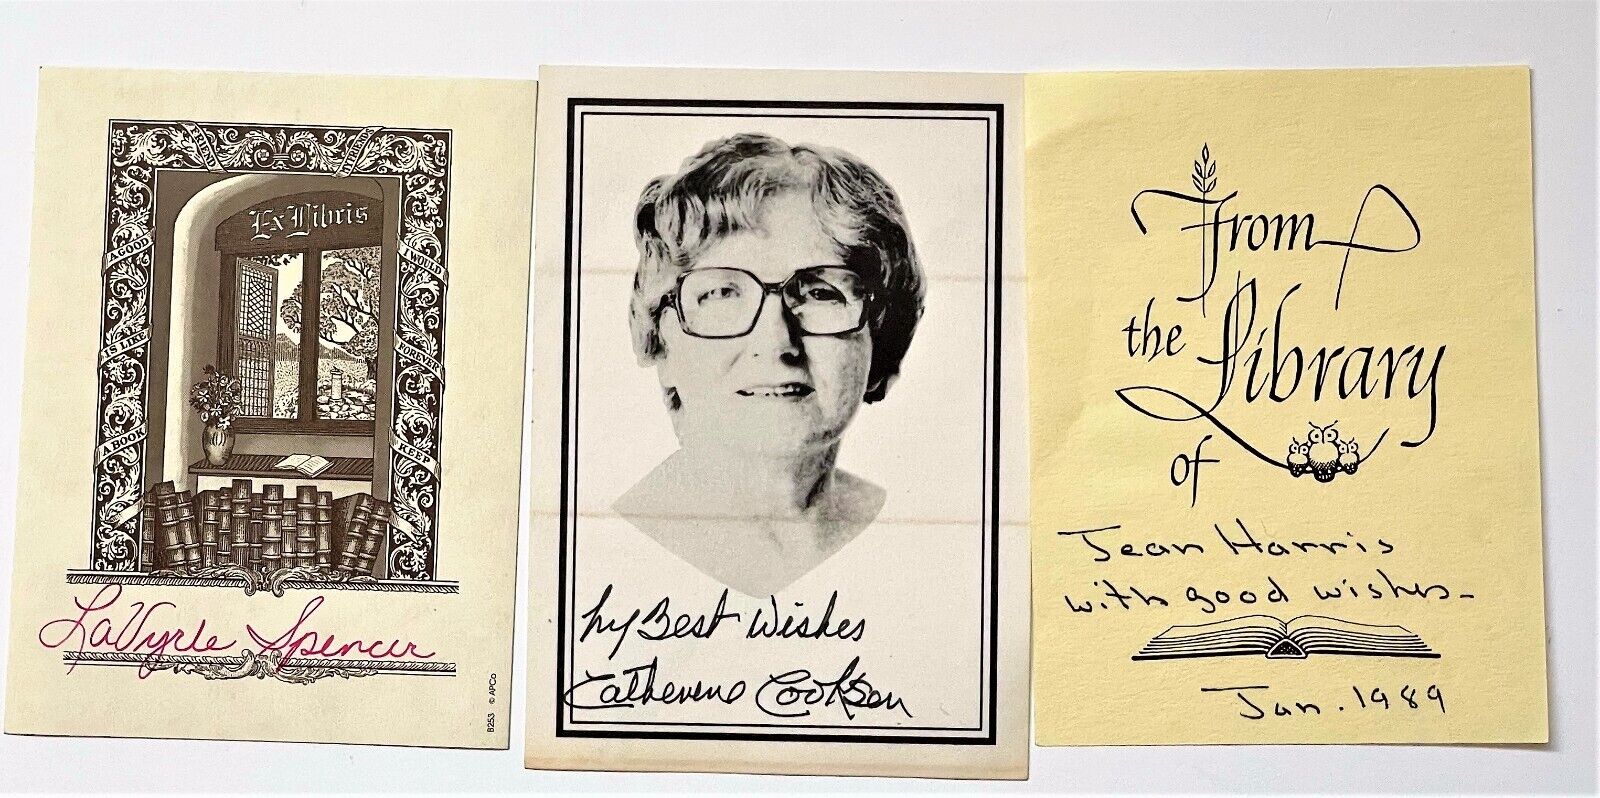 Ex Libris
A GOOD
FRIEND
IS LIKE
A BOOK
I WOULD
FOREVER
KEEP
LaVyrle Spencer
B253 © APCo
My Best Wishes
Catherine Cookson
From
the Library
of
Jean Harris
with good wishes-
Jan. 1989